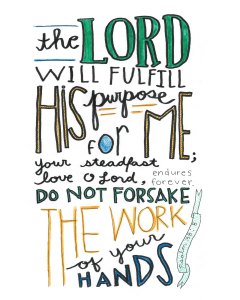 the LORD
WILL FULFILL
HIS purpose
for ME;
your steadfast
love O Lord, endures
forever.
DO NOT FORSAKE
THE WORK
of your
HANDS